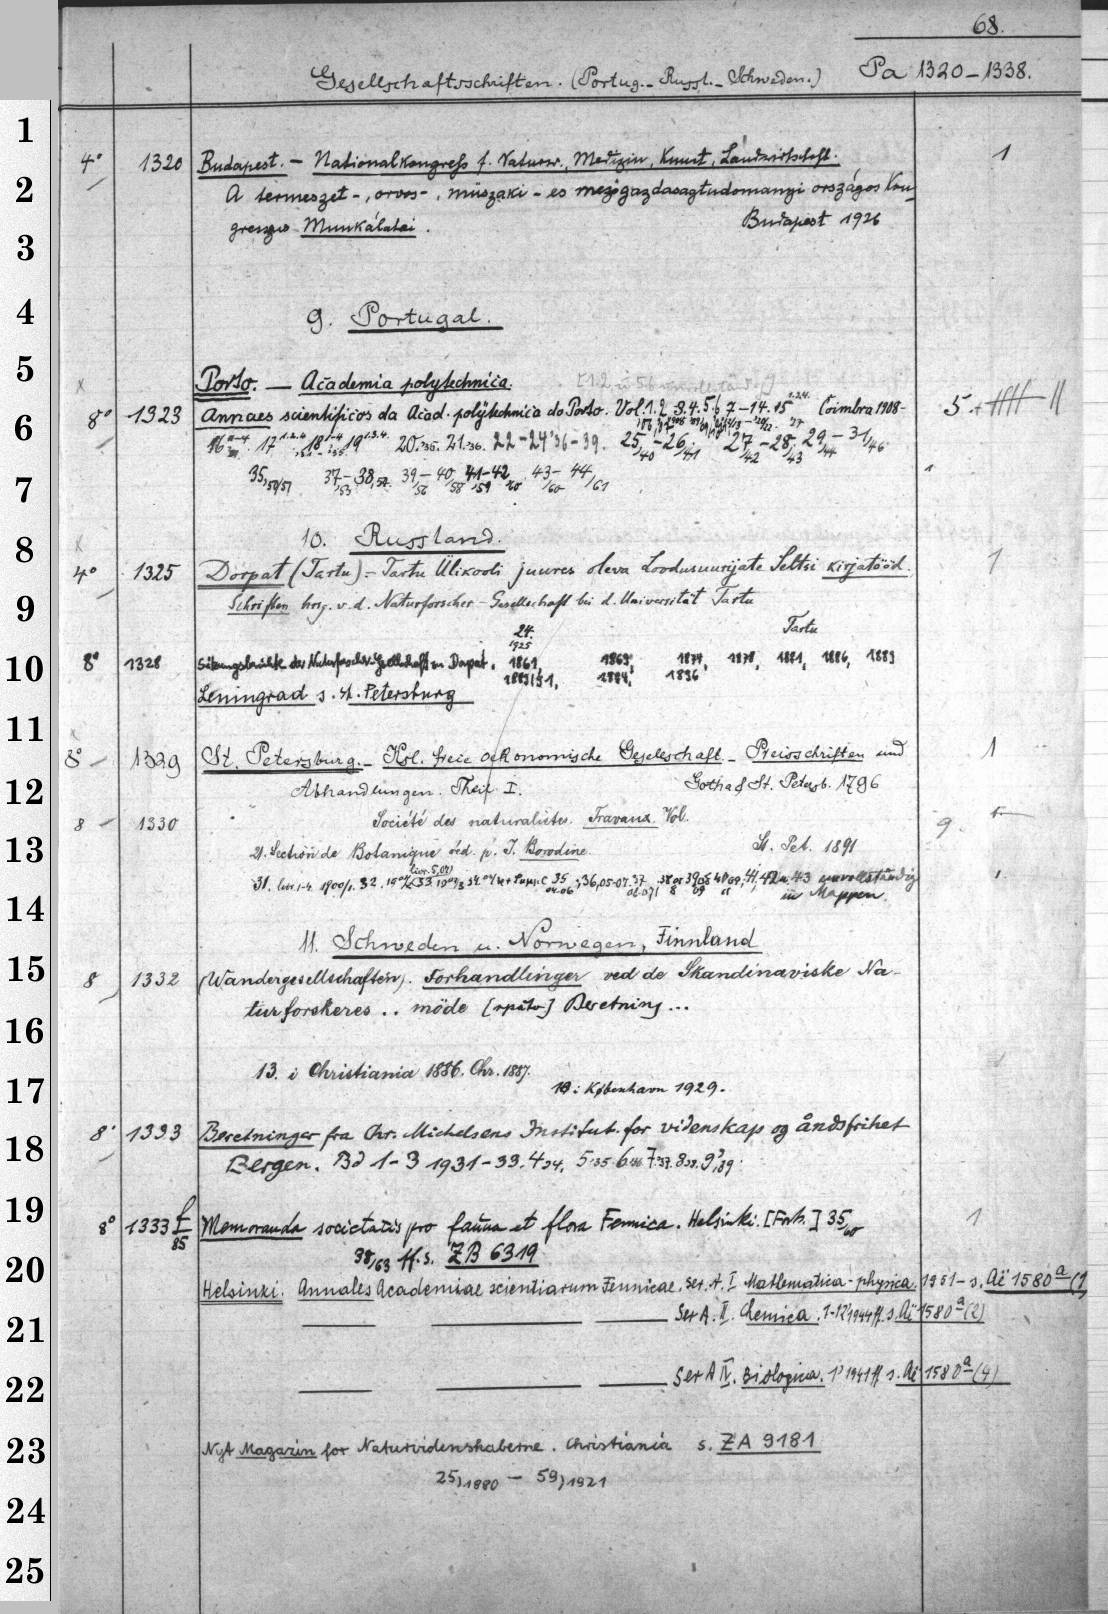 68.
Gesellschaftsschriften. (Portug. - Russl. - Schweden.) Pa 1320-1338.
1
4° 1320 Budapest. - Nationalkongreß f. Naturw., Medizin, Kunst, Landwirtschaft. 1
2
A termeszet-, orvos-, müszaki - es mezögazdasagtudomanyi országos Kon-
gresszus Munkálatai. Budapest 1926
3
4
9. Portugal.
5
Porto. — Academia polytechnica.
6
8° 1323 Annaes scientificos da Acad. polytechnica do Porto. Vol. 1. 2 3. 4. 5. 6 7-14. 15 Coimbra 1908-
16 17 18 19 20. 21. 22-24 36-39. 25/40-26/41 27/42-28/43 29/44-31/46
7
35, 50/51 37/53-38, 57. 39/56-40/58 41/59-42/60 43/60-44/61
8
10. Russland.
4° 1325 Dorpat (Tartu) - Tartu Ülikooli juures oleva Loodusuurijate Seltsi kirjatööd. 1
9
Schriften hrsg. v. d. Naturforscher-Gesellschaft bei d. Universität Tartu
Tartu
24.
1925
10
8° 1328 Sitzungsberichte der Naturforscher-Gesellschaft zu Dorpat. 1861, 1869, 1874, 1878, 1881, 1886, 1889
1894, 1896
Leningrad s. St. Petersburg
11
8° 1329 St. Petersburg. - Ksl. freie oekonomische Gesellschaft - Preisschriften und 1
12
Abhandlungen. Theil I. Gotha & St. Petersb. 1796
8 1330 Société des naturalistes. Travaux Vol. 9.
13
21. Section de Botanique réd. p. I. Borodine St. Pet. 1891
unvollständig
in Mappen.
14
11. Schweden u. Norwegen, Finnland
15
8 1332 (Wandergesellschaften). Forhandlinger ved de Skandinaviske Na-
turforskeres .. möde [später] Beretning ...
16
13. i Christiania 1886. Chr. 1887.
17
18: København 1929.
8° 1333 Beretninger fra Chr. Michelsens Institut for videnskap og åndsfrihet
18
Bergen. Bd 1-3 1931-33. 4 34. 5 35 6 36 7 37. 8 38. 9 39.
19
8° 1333 f/85 Memoranda societatis pro fauna et flora Fennica. Helsinki. [Forts.] 35/60 1
20
38/63 ff. s. ZB 6319
Helsinki. Annales Academiae scientiarum Fennicae. Ser. A. I Mathematica-physica. 1951- s. Aë 1580 a (1)
21
Ser A. II. Chemica. 1-12 1944 ff. s. Aë 1580 a (2)
22
Ser A IV. Biologica. 1 1941 ff s. Aë 1580 a (4)
23
Nyt Magazin for Naturvidenskaberne. Christiania s. ZA 9181
25, 1880 - 59, 1921
24
25